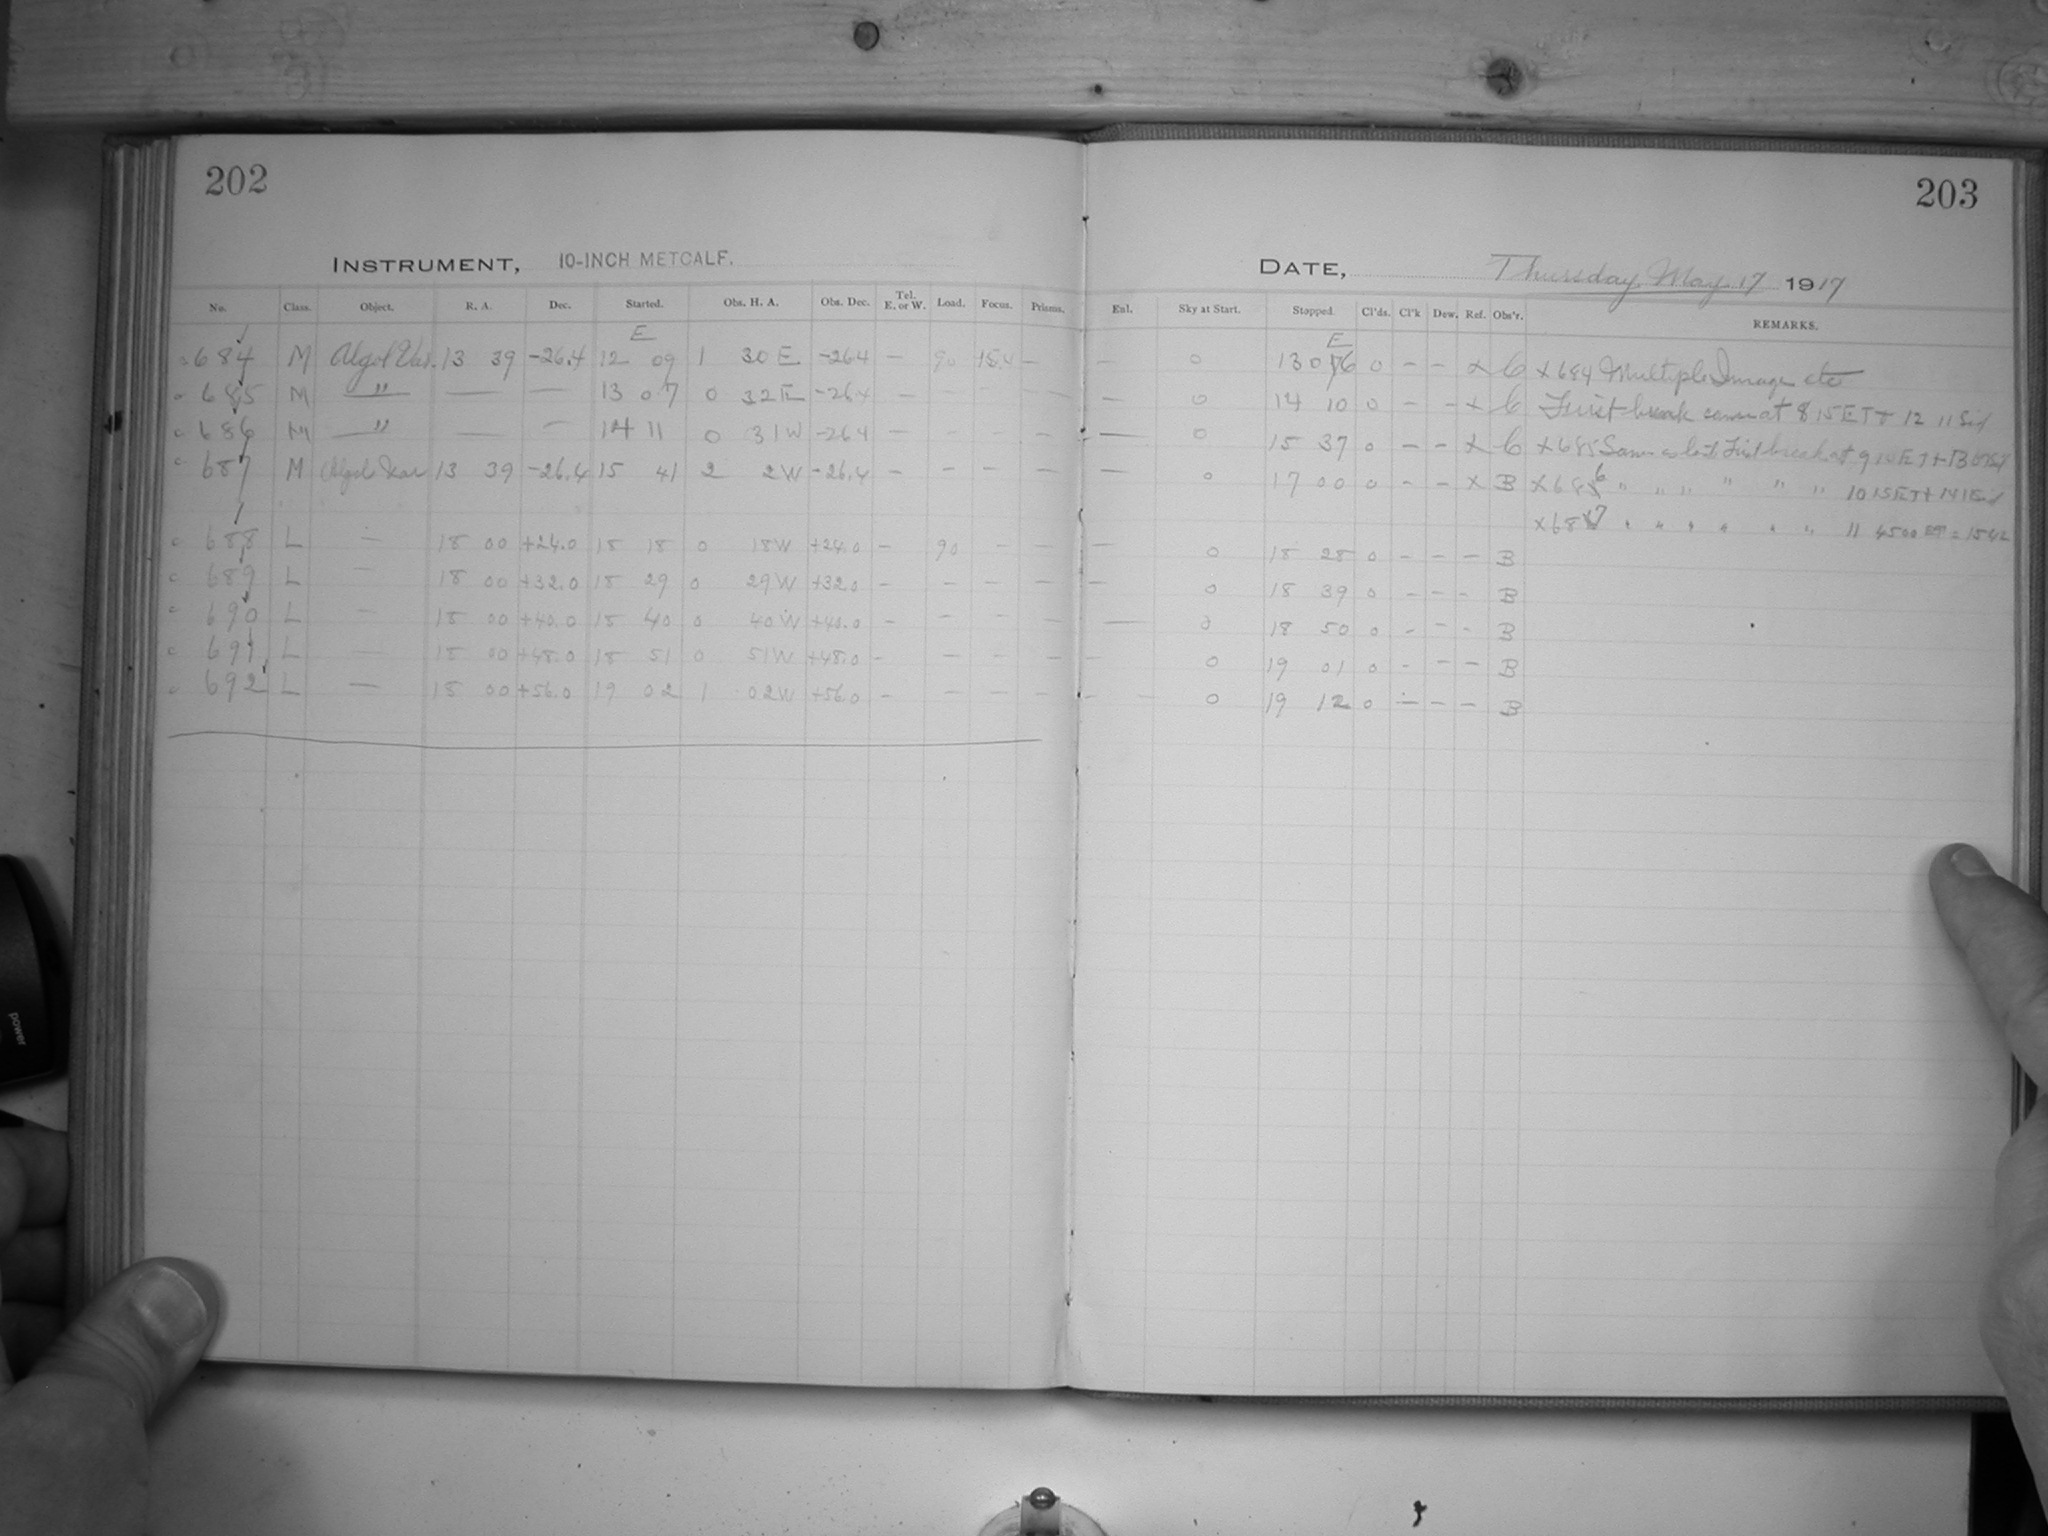 202
203
INSTRUMENT, 10-INCH METCALF.
DATE, Thursday May 17 1917
No. Class. Object. R. A. Dec. Started. Obs. H. A. Obs. Dec. Tel. E. or W. Load. Focus. Prisms. Enl. Sky at Start. Stopped Cl'ds. Cl'k Dew. Ref. Obs'r. REMARKS.
E E
684 M Algol Var. 13 39 -26.4 12 09 1 30 E -264 — 90 15.4 — — 0 13 06 0 - - x C x 684 Multiple Image etc
685 M " — — 13 07 0 32 E -264 — — — — — 0 14 10 0 - - x C First break came at 8 15 ET + 12 11 Sid
686 M " — — 14 11 0 31 W -264 — — — — — 0 15 37 0 - - x C x 685 Same as last First break at 9 10 ET +
687 M Algol Var 13 39 -26.4 15 41 2 2 W -26.4 — — — — — 0 17 00 0 - - x B x 686 " " " " " " 10 15 ET +
x 687 " " " " " " 11 4500 ET = 1542
688 L — 18 00 +24.0 18 18 0 18 W +24.0 — 90 — — — 0 18 28 0 - - - B
689 L — 18 00 +32.0 18 29 0 29 W +32.0 — — — — — 0 18 39 0 - - - B
690 L — 18 00 +40.0 18 40 0 40 W +40.0 — — — — — 0 18 50 0 - - - B
691 L — 18 00 +48.0 18 51 0 51 W +48.0 — — — — — 0 19 01 0 - - - B
692 L — 18 00 +56.0 19 02 1 02 W +56.0 — — — — — 0 19 12 0 - - - B
power